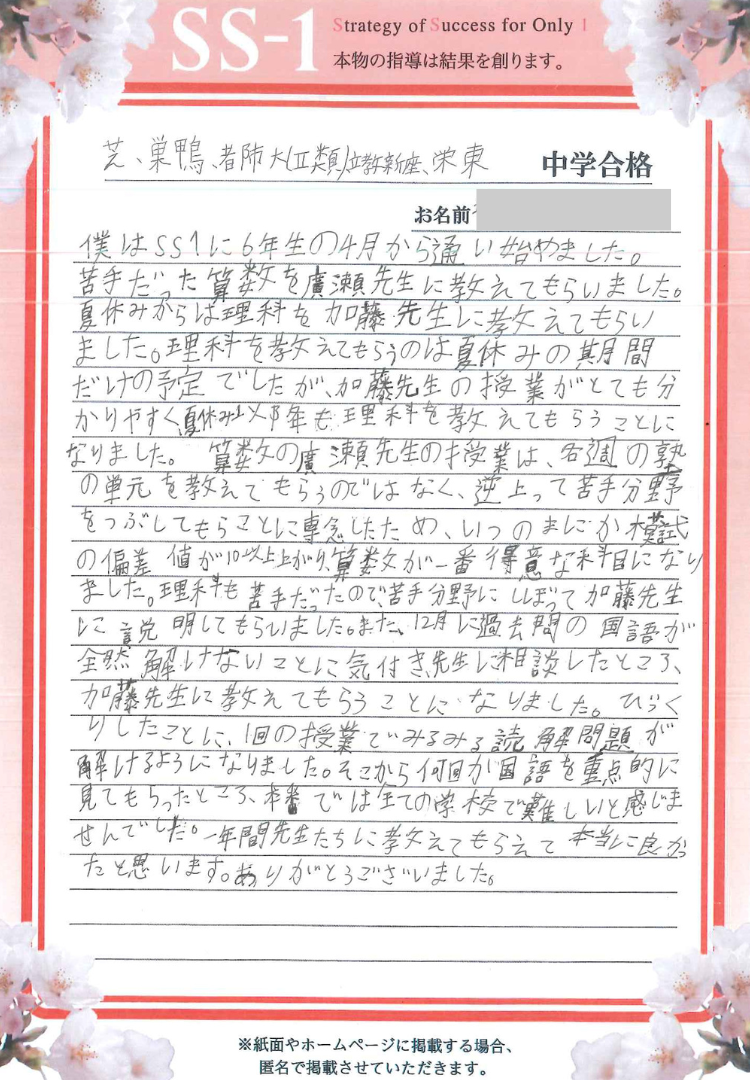 SS-1
Strategy of Success for Only 1
本物の指導は結果を創ります。
芝、巣鴨、都市大(II類)、立教新座、栄東 中学合格
お名前
僕はSS1に6年生の4月から通い始めました。
苦手だった算数を廣瀬先生に教えてもらいました。
夏休みからは理科を加藤先生に教えてもらい
ました。理科を教えてもらうのは夏休みの期間
だけの予定でしたが、加藤先生の授業がとても分
かりやすく夏休み以降も理科を教えてもらうことに
なりました。算数の廣瀬先生の授業は、各週の塾
の単元を教えてもらうのではなく、逆上って苦手分野
をつぶしてもらことに専念したため、いつのまにか模試
の偏差値が10以上上がり、算数が一番得意な科目になり
ました。理科も苦手だったので、苦手分野にしぼって加藤先生
に説明してもらいました。また、12月に過去問の国語が
全然解けないことに気付き、先生に相談したところ、
加藤先生に教えてもらうことになりました。びっく
りしたことに、1回の授業でみるみる読解問題が
解けるようになりました。そこから何回か国語を重点的に
見てもらったところ、本番では全ての学校で難しいと感じま
せんでした。一年間先生たちに教えてもらえて本当に良かっ
たと思います。ありがとうございました。
※紙面やホームページに掲載する場合、
匿名で掲載させていただきます。